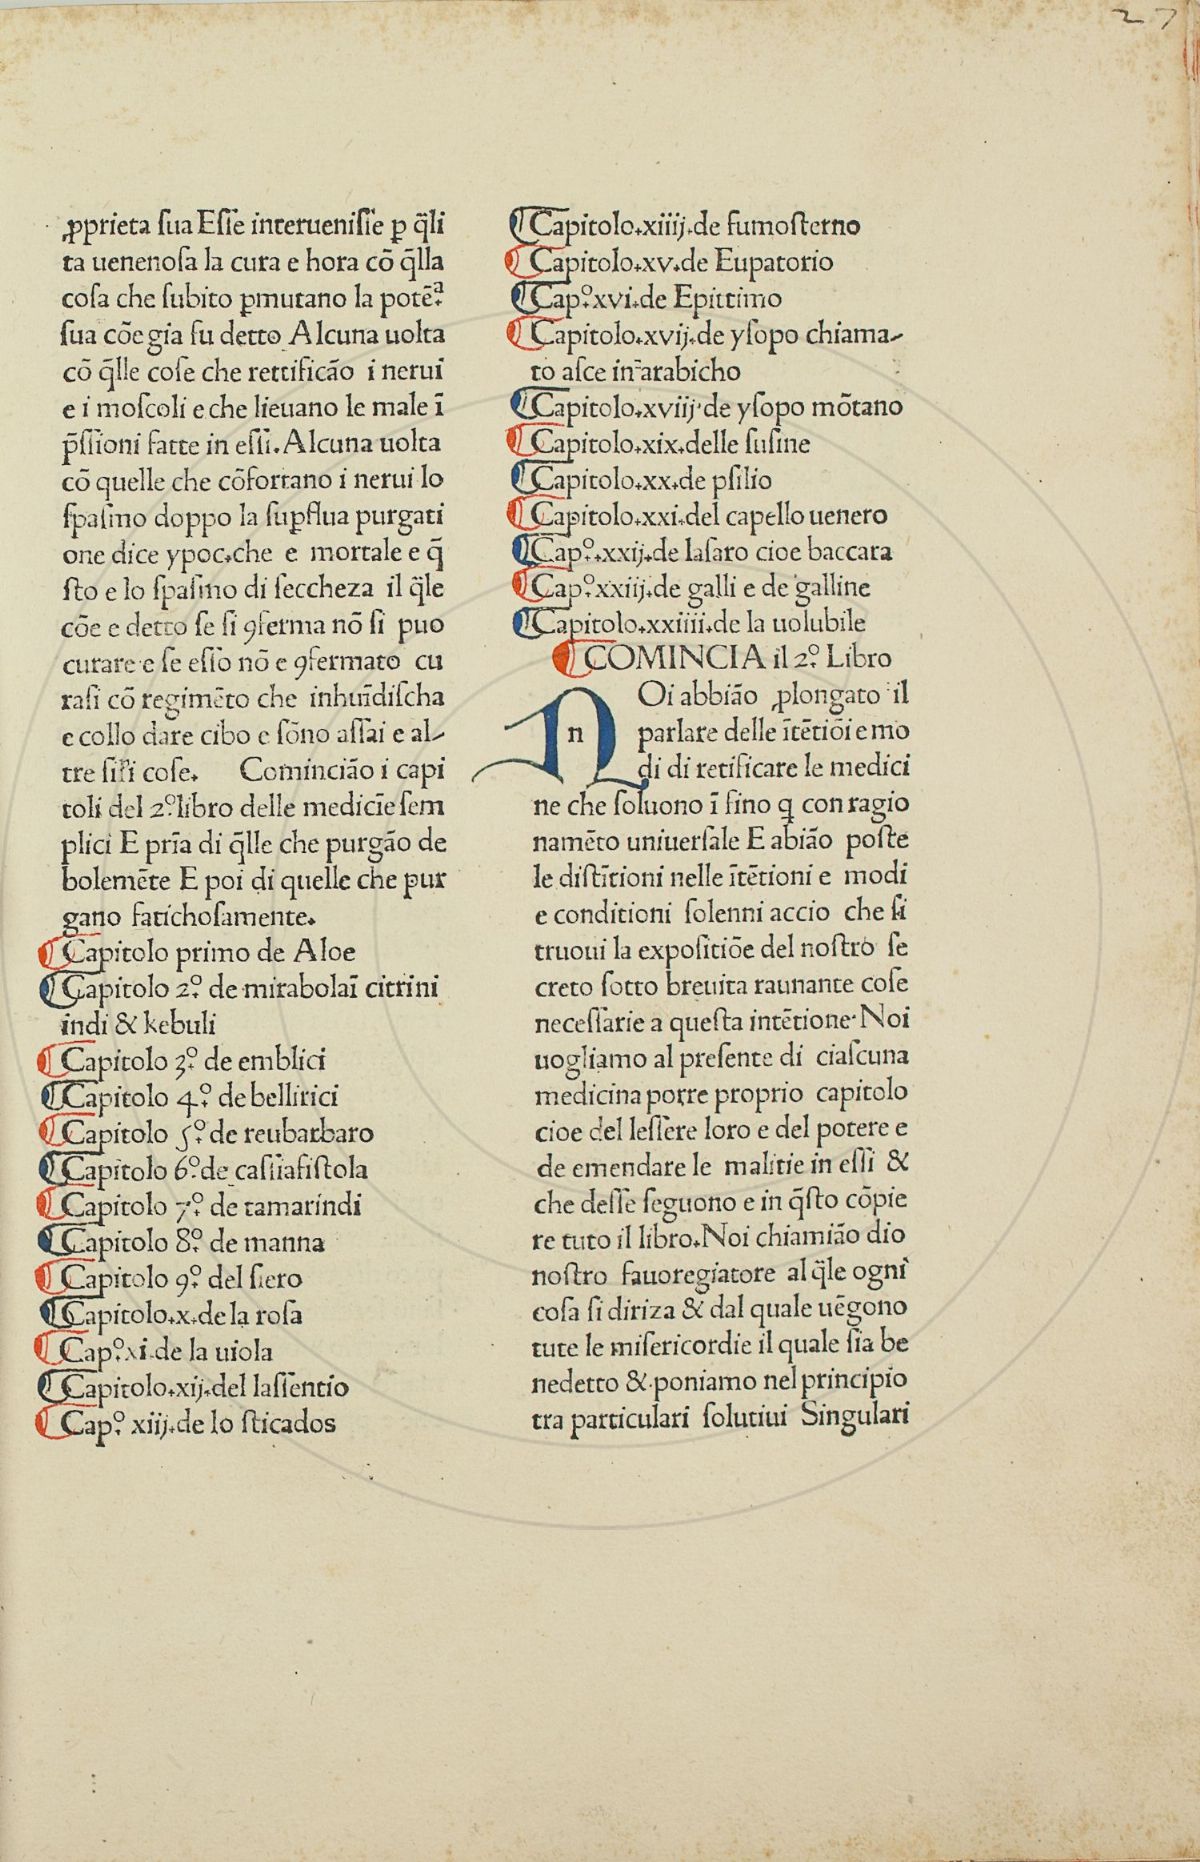 27
ꝓprieta sua Esſe interueniſſe ꝑ q̄li
ta uenenoſa la cura e hora cō q̄lla
coſa che ſubito ꝑmutano la potē.ᵃ
ſua cōe gia fu detto Alcuna uolta
cō q̄lle coſe che rettificāo i nerui
e i moſcoli e che lieuano le male ī
p̄ſſioni fatte in eſſi. Alcuna uolta
cō quelle che cōfortano i nerui lo
ſpaſmo doppo la ſuꝑflua purgati
one dice ypoc.che e mortale e q̄
ſto e lo ſpaſmo di ſeccheza il q̄le
cōe e detto ſe ſi ꝯferma nō ſi puo
curare e ſe eſſo nō e ꝯfermato cu
raſi cō regimēto che inhūdiſcha
e collo dare cibo e ſōno aſſai e al-
tre ſiſi coſe. Comincião i capi
toli del 2º libro delle medicīe ſem
plici E prīa di q̄lle che purgāo de
bolemēte E poi di quelle che pur
gano fatichoſamente.
¶Capitolo primo de Aloe
¶Capitolo 2º. de mirabolaī citrini
indi & kebuli
¶Capitolo 3º. de emblici
¶Capitolo 4º. de bellirici
¶Capitolo 5º. de reubarbaro
¶Capitolo 6º. de caſſiafiſtola
¶Capitolo 7º. de tamarindi
¶Capitolo 8º. de manna
¶Capitolo 9º. del ſiero
¶Capitolo.x.de la roſa
¶Capº.xi.de la uiola
¶Capitolo.xij.del laſſentio
¶Capº. xiij.de lo ſticados
¶Capitolo.xiiij.de fumoſterno
¶Capitolo.xv.de Eupatorio
¶Capº.xvi.de Epittimo
¶Capitolo.xvij.de yſopo chiama-
to aſce in arabicho
¶Capitolo.xviij.de yſopo mōtano
¶Capitolo.xix.delle ſuſine
¶Capitolo.xx.de pſilio
¶Capitolo.xxi.del capello uenero
¶Capº.xxij.de laſaro cioe baccara
¶Capº.xxiij.de galli e de galline
¶Capitolo.xxiiii.de la uolubile
¶COMINCIA il 2º. Libro
NOi abbiāo ꝓlongato il
parlare delle ītētiōi e mo
di di retificare le medici
ne che ſoluono ī ſino q̄ con ragio
namēto uniuerſale E abiāo poſte
le diſtītioni nelle ītētioni e modi
e conditioni ſolenni accio che ſi
truoui la expoſitiōe del noſtro ſe
creto ſotto breuita raunante coſe
neceſſarie a queſta intētione. Noi
uogliamo al preſente di ciaſcuna
medicina porre proprio capitolo
cioe del leſſere loro e del potere e
de emendare le malitie in eſſi &
che deſſe ſeguono e in q̄ſto cōpie
re tuto il libro. Noi chiamiāo dio
noſtro fauoregiatore al q̄le ogni
coſa ſi diriza & dal quale uēgono
tute le miſericordie il quale ſia be
nedetto & poniamo nel principio
tra particulari ſolutiui Singulari